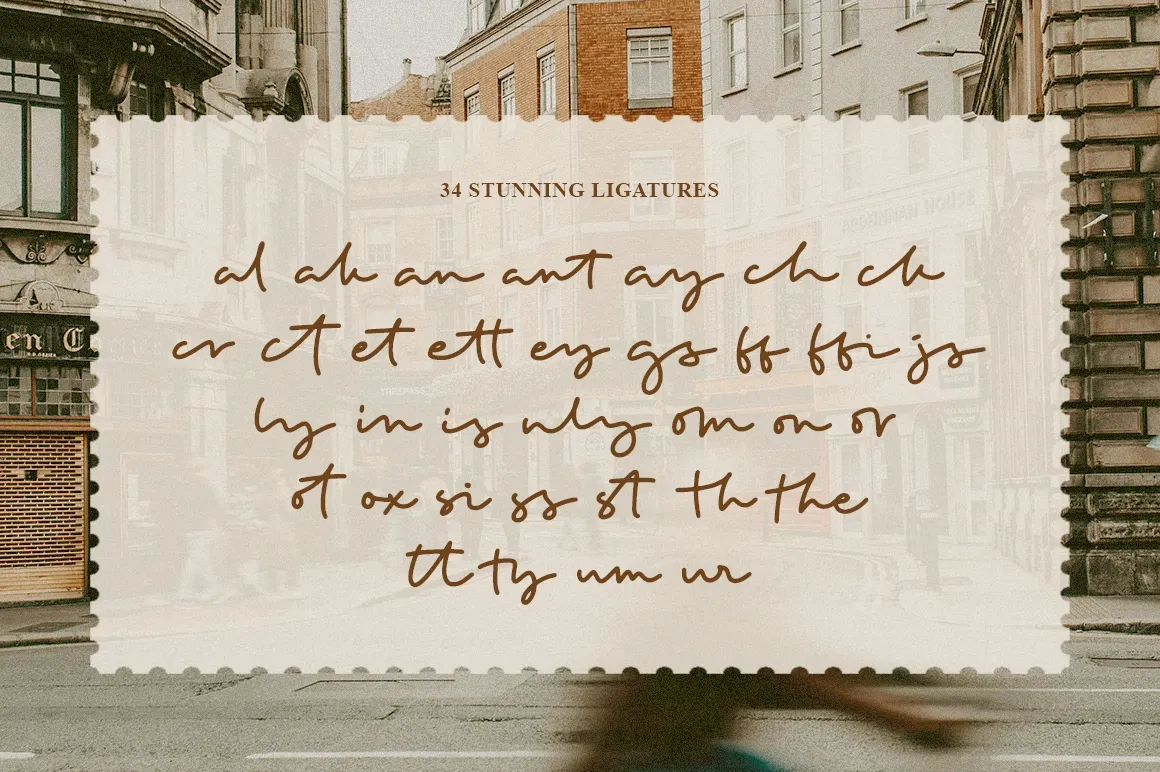 34 STUNNING LIGATURES
al ak an ant ay ch ck
cr ct et ett ey gs ff ffi js
ly in is nly om on or
ot ox si ss st th the
tt ty um ur
en C